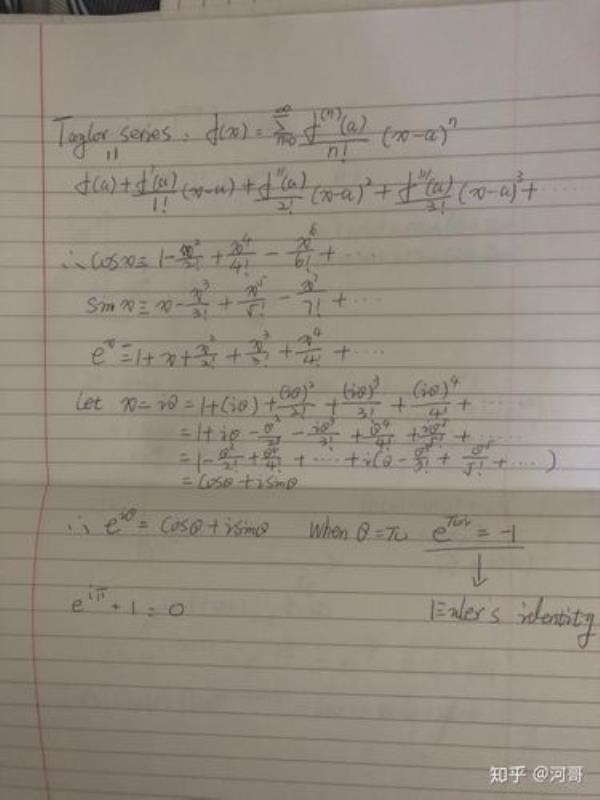 Taylor series: f(x) = ∑_{n=0}^{∞} f^{(n)}(a)/n! (x-a)^n
f(a) + f'(a)/1! (x-a) + f''(a)/2! (x-a)^2 + f'''(a)/3! (x-a)^3 + ....
∴ cos x = 1 - x^2/2! + x^4/4! - x^6/6! + ....
sin x = x - x^3/3! + x^5/5! - x^7/7! + ....
e^x = 1 + x + x^2/2! + x^3/3! + x^4/4! + ....
Let x = iθ = 1 + (iθ) + (iθ)^2/2! + (iθ)^3/3! + (iθ)^4/4! + ....
= 1 + iθ - θ^2/2! - iθ^3/3! + θ^4/4! + iθ^5/5! + ....
= 1 - θ^2/2! + θ^4/4! + .... + i(θ - θ^3/3! + θ^5/5! + ....)
= cosθ + isinθ
∴ e^{iθ} = cosθ + isinθ When θ = π e^{πi} = -1
e^{iπ} + 1 = 0 Euler's identity
知乎 @河哥